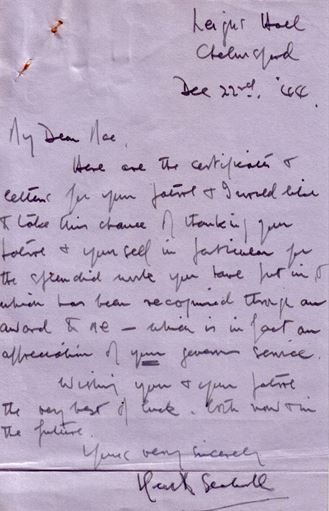 Leighs Hall
Chelmsford
Dec 22nd. '44
My Dear Mac,
Here are the certificates &
letters for your patrol & I would like
to take this chance of thanking your
patrol & yourself in particular for
the splendid work you have put in &
which has been recognised through an
award to me – which is in fact an
appreciation of your generous service.
Wishing you & your patrol
the very best of luck. both now & in
the future.
Yours very sincerely